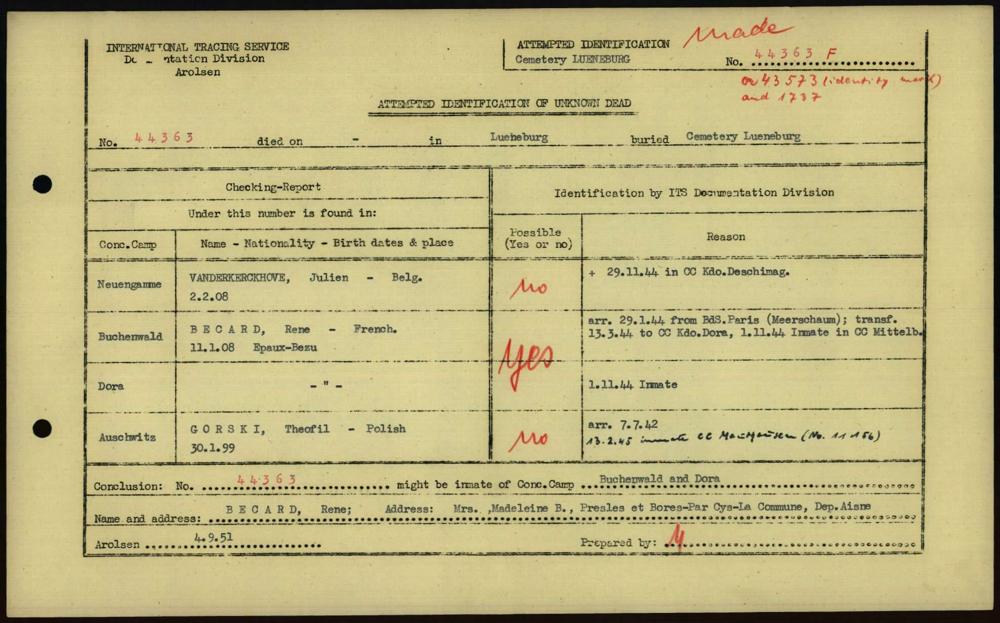 INTERNATIONAL TRACING SERVICE
Documentation Division
Arolsen
ATTEMPTED IDENTIFICATION
Cemetery LUENEBURG
made
No. 44363 F
or 43573 (identity mark)
and 1737
ATTEMPTED IDENTIFICATION OF UNKNOWN DEAD
No. 44363 died on - in Lueneburg buried Cemetery Lueneburg
Checking-Report
Identification by ITS Documentation Division
Under this number is found in:
Conc.Camp
Name - Nationality - Birth dates & place
Possible
(Yes or no)
Reason
Neuengamme
VANDERKERCKHOVE, Julien - Belg.
2.2.08
no
+ 29.11.44 in CC Kdo.Deschimag.
Buchenwald
BECARD, Rene - French.
11.1.08 Epaux-Bezu
yes
arr. 29.1.44 from BdS.Paris (Meerschaum); transf.
13.3.44 to CC Kdo.Dora, 1.11.44 Inmate in CC Mittelb.
Dora
- " -
1.11.44 Inmate
Auschwitz
GORSKI, Theofil - Polish
30.1.99
no
arr. 7.7.42
13.2.45 inmate CC Mauthausen (No. 11156)
Conclusion: No. 44363 might be inmate of Conc.Camp Buchenwald and Dora
Name and address: BECARD, Rene; Address: Mrs. ,Madeleine B., Presles et Bores-Par Cys-La Commune, Dep.Aisne
Arolsen 4.9.51 Prepared by: